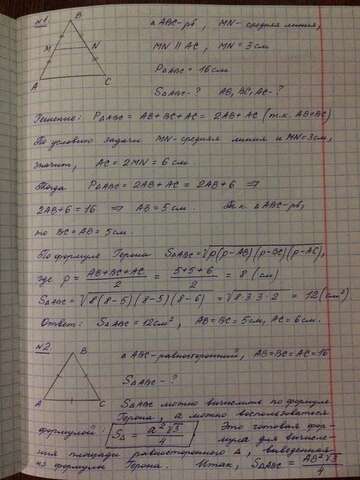 №1
B
M
N
A
C
△ABC-рб, MN-средняя линия,
MN || AC, MN = 3см
P△ABC = 16см
S△ABC - ? AB, BC, AC - ?
Решение: P△ABC = AB + BC + AC = 2AB + AC (т.к. AB=BC)
По условию задачи MN-средняя линия и MN=3см,
значит, AC = 2MN = 6см.
Тогда P△ABC = 2AB + AC = 2AB + 6 ⇒
2AB+6 = 16 ⇒ AB = 5см. Т.к. △ABC-рб,
то BC = AB = 5см.
По формуле Герона S△ABC = √p(p-AB)(p-BC)(p-AC),
где p = (AB+BC+AC)/2 = (5+5+6)/2 = 8 (см)
S△ABC = √8(8-5)(8-5)(8-6) = √8·3·3·2 = 12 (см²)
Ответ: S△ABC = 12см², AB = BC = 5см, AC = 6см.
№2
B
A
C
△ABC-равносторонний, AB=BC=AC=16
S△ABC - ?
S△ABC можно вычислить по формуле
Герона, а можно воспользоваться
формулой: S△ = a²√3/4 Это готовая фор-
мула для вычисле-
ния площади равностороннего △, выведенная
из формулы Герона. Итак, S△ABC = AB²√3/4